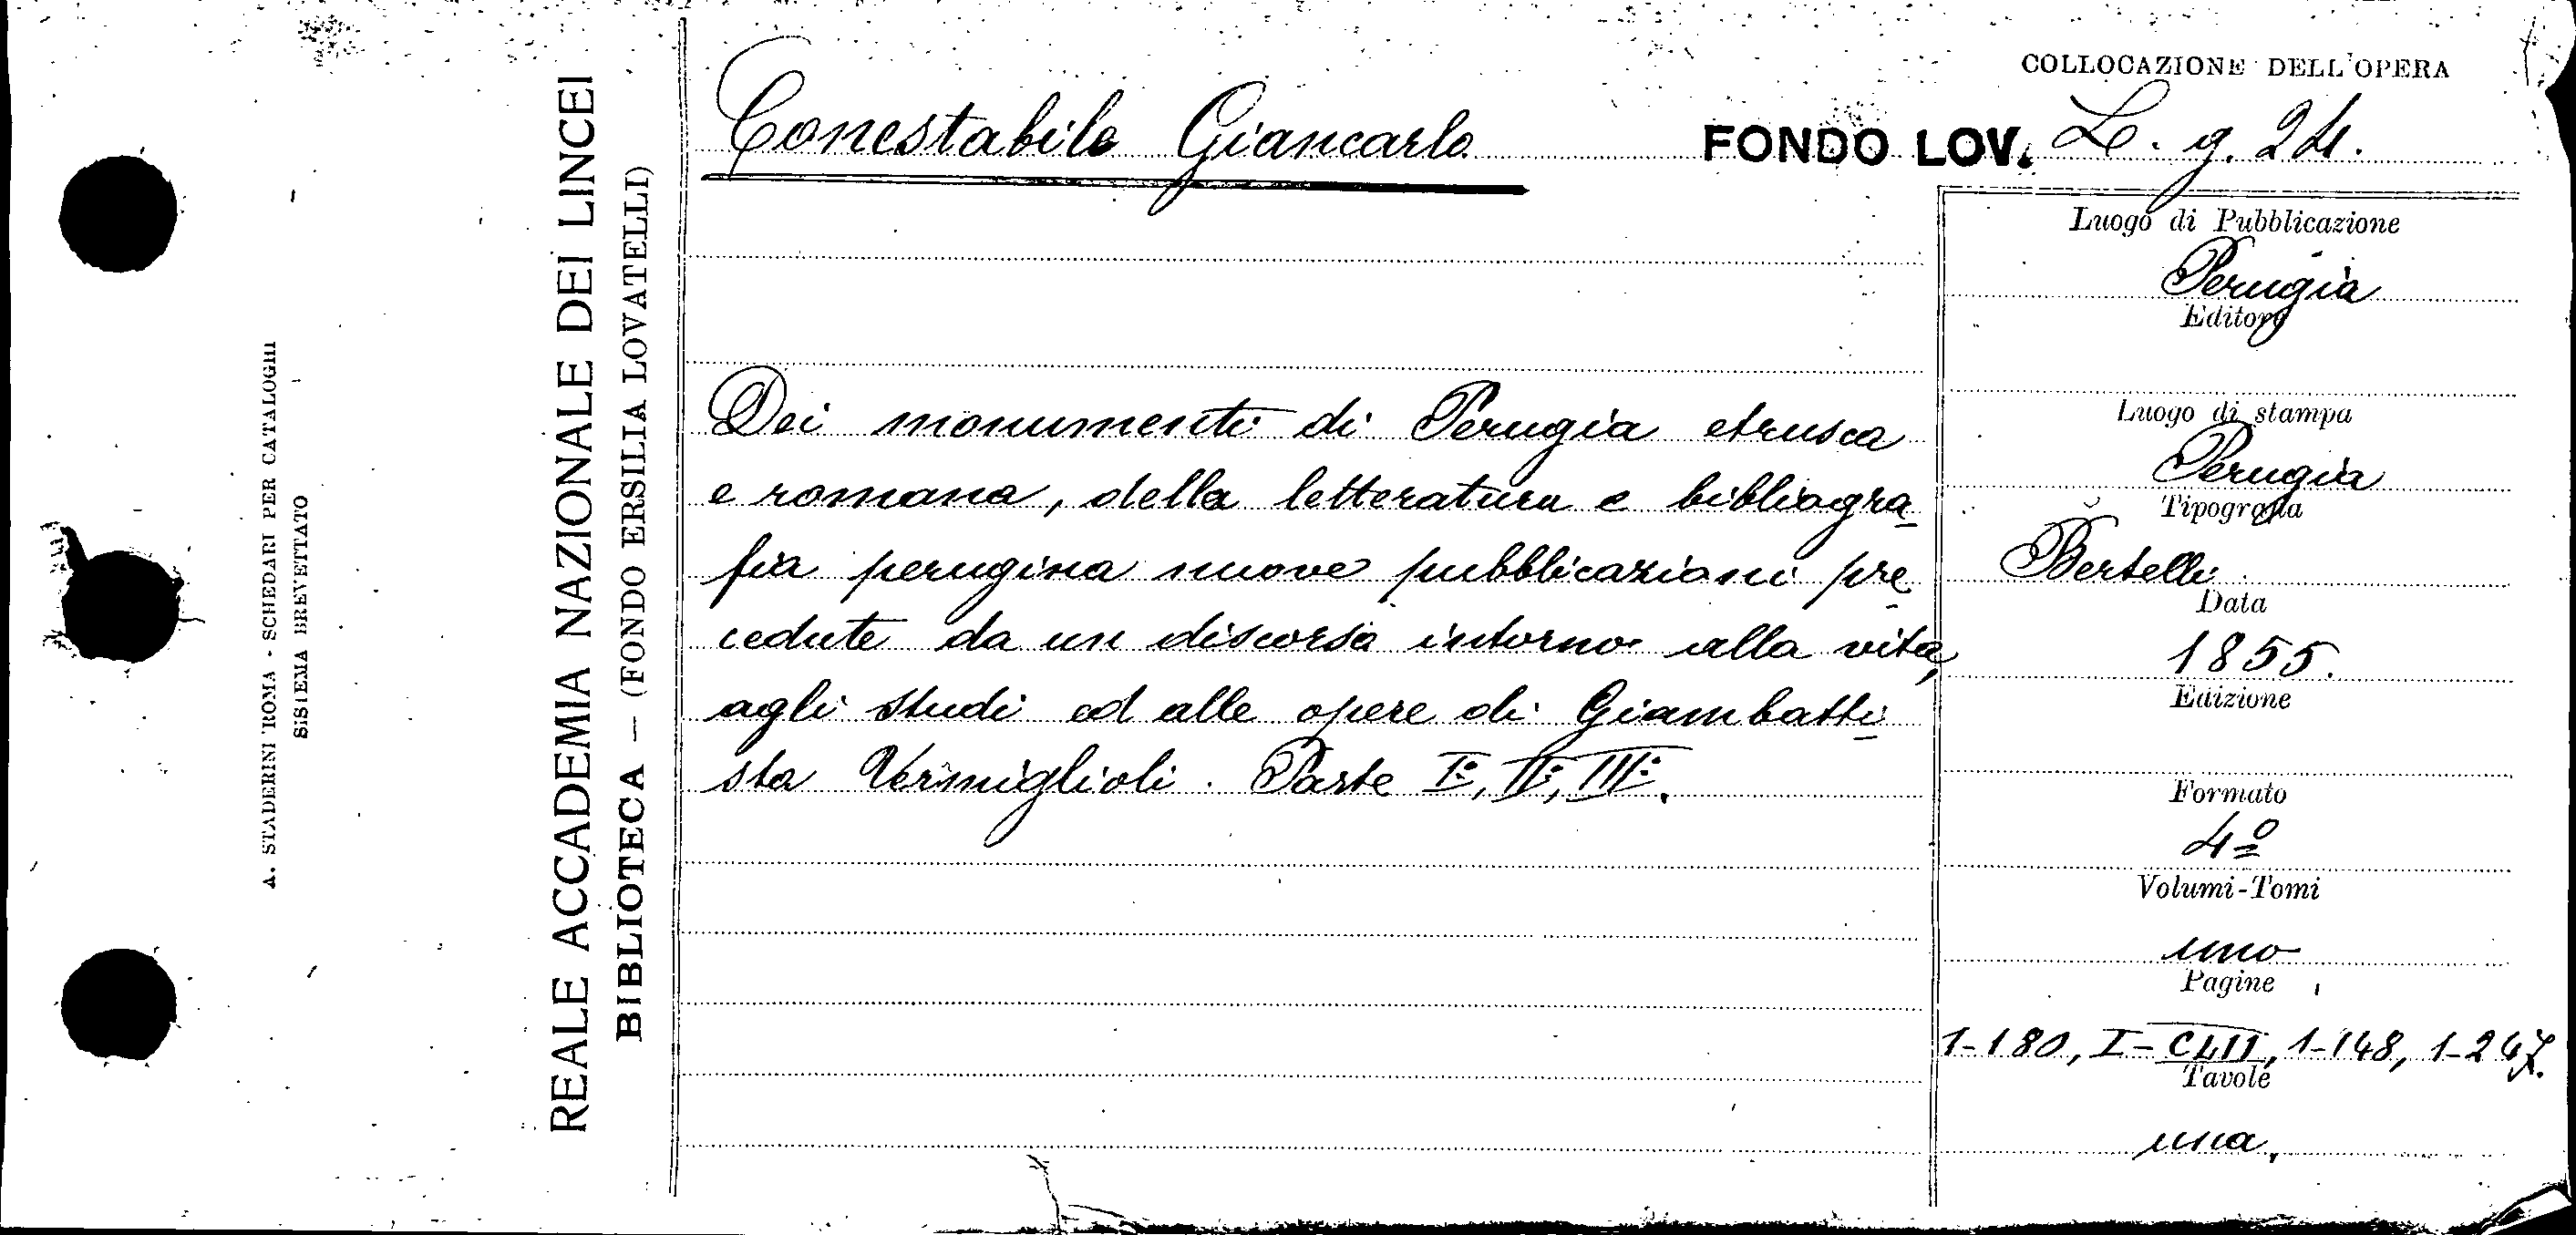 A. STADERINI ROMA - SCHEDARI PER CATALOGHI
SISTEMA BREVETTATO
REALE ACCADEMIA NAZIONALE DEI LINCEI
BIBLIOTECA — (FONDO ERSILIA LOVATELLI)
COLLOCAZIONE DELL'OPERA
Conestabile Giancarlo
FONDO LOV. L. g. 24.
Dei monumenti di Perugia etrusca
e romana, della letteratura e bibliogra-
fia perugina nuove pubblicazioni pre-
cedute da un discorso intorno alla vita,
agli studi ed alle opere di Giambatti-
sta Vermiglioli. Parte Iª, IIª, IIIª.
Luogo di Pubblicazione
Perugia
Editore
Luogo di stampa
Perugia
Tipografia
Bertelli
Data
1855.
Edizione
Formato
4º
Volumi-Tomi
uno
Pagine
1-180, I-CLII, 1-148, 1-247.
Tavole
una.